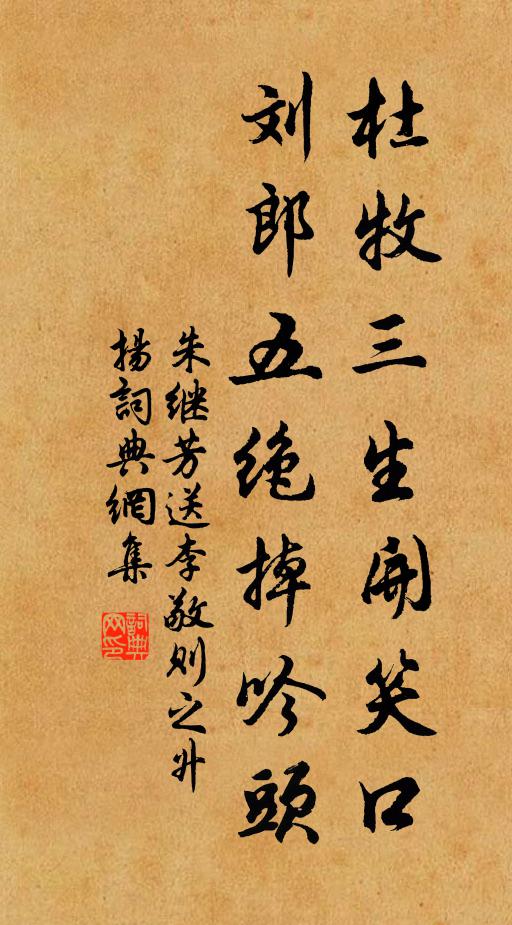 杜牧三生開笑口
刘郎五绝掉吟頭
朱继芳送李敬则之升
揚詞典網集
詞典网印